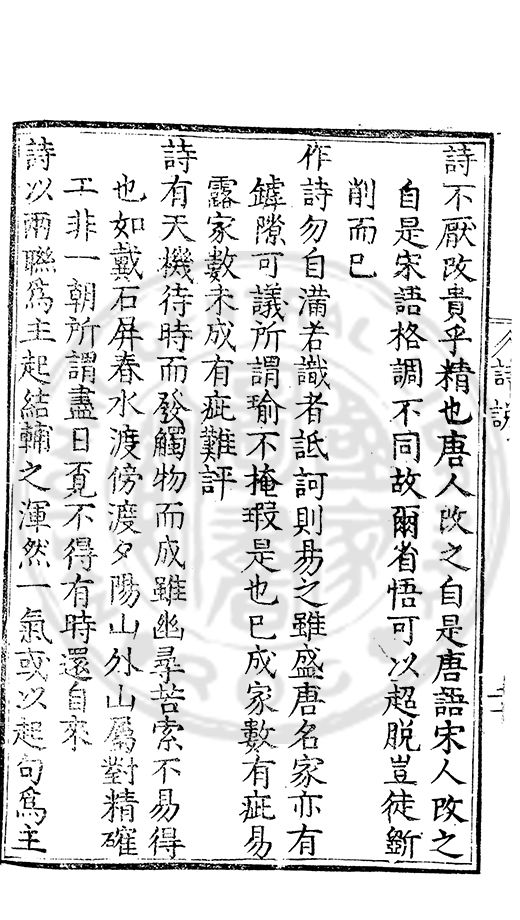 詩不厭改貴乎精也唐人改之自是唐語宋人改之
自是宋語格調不同故爾省悟可以超脱豈徒斵
削而已
作詩勿自滿若識者詆訶則易之雖盛唐名家亦有
罅隙可議所謂瑜不掩瑕是也已成家數有疵易
露家數未成有疵難評
詩有天機待時而發觸物而成雖幽尋苦索不易得
也如戴石屏春水渡傍渡夕陽山外山屬對精確
工非一朝所謂盡日覓不得有時還自來
詩以兩聯爲主起結輔之渾然一氣或以起句爲主